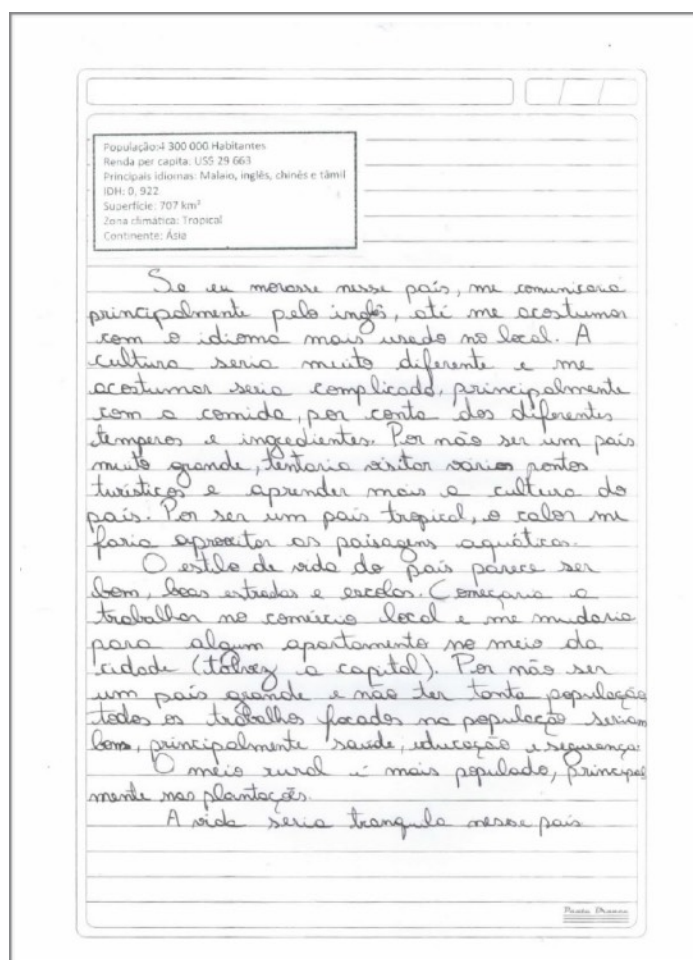 População:4 300 000 Habitantes
Renda per capita: US$ 29 663
Principais idiomas: Malaio, inglês, chinês e tâmil
IDH: 0, 922
Superfície: 707 km²
Zona climática: Tropical
Continente: Ásia
Se eu morasse nesse país, me comunicaria
principalmente pelo inglês, até me acostumar
com o idioma mais usado no local. A
cultura seria muito diferente e me
acostumar seria complicado, principalmente
com a comida, por conta dos diferentes
temperos e ingredientes. Por não ser um país
muito grande, tentaria visitar varios pontos
turísticos e aprender mais a cultura do
país. Por ser um país tropical, o calor me
faria aproveitar as paisagens aquáticas.
O estilo de vida do país parece ser
bom, boas estradas e escolas. Começaria a
trabalhar no comércio local e me mudaria
para algum apartamento no meio da
cidade (talvez a capital). Por não ser
um país grande e não ter tanta população
todos os trabalhos focados na população seriam
bons, principalmente saúde, educação e segurança.
O meio rural é mais populado, principal
mente nas plantações.
A vida seria tranquila nesse país